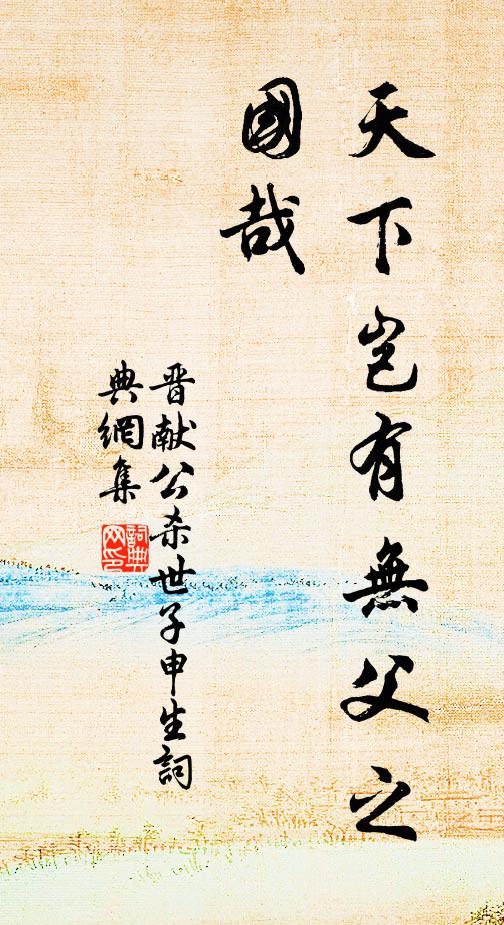 天下岂有無父之
國哉
晋献公杀世子申生詞
典網集
詞典
网印